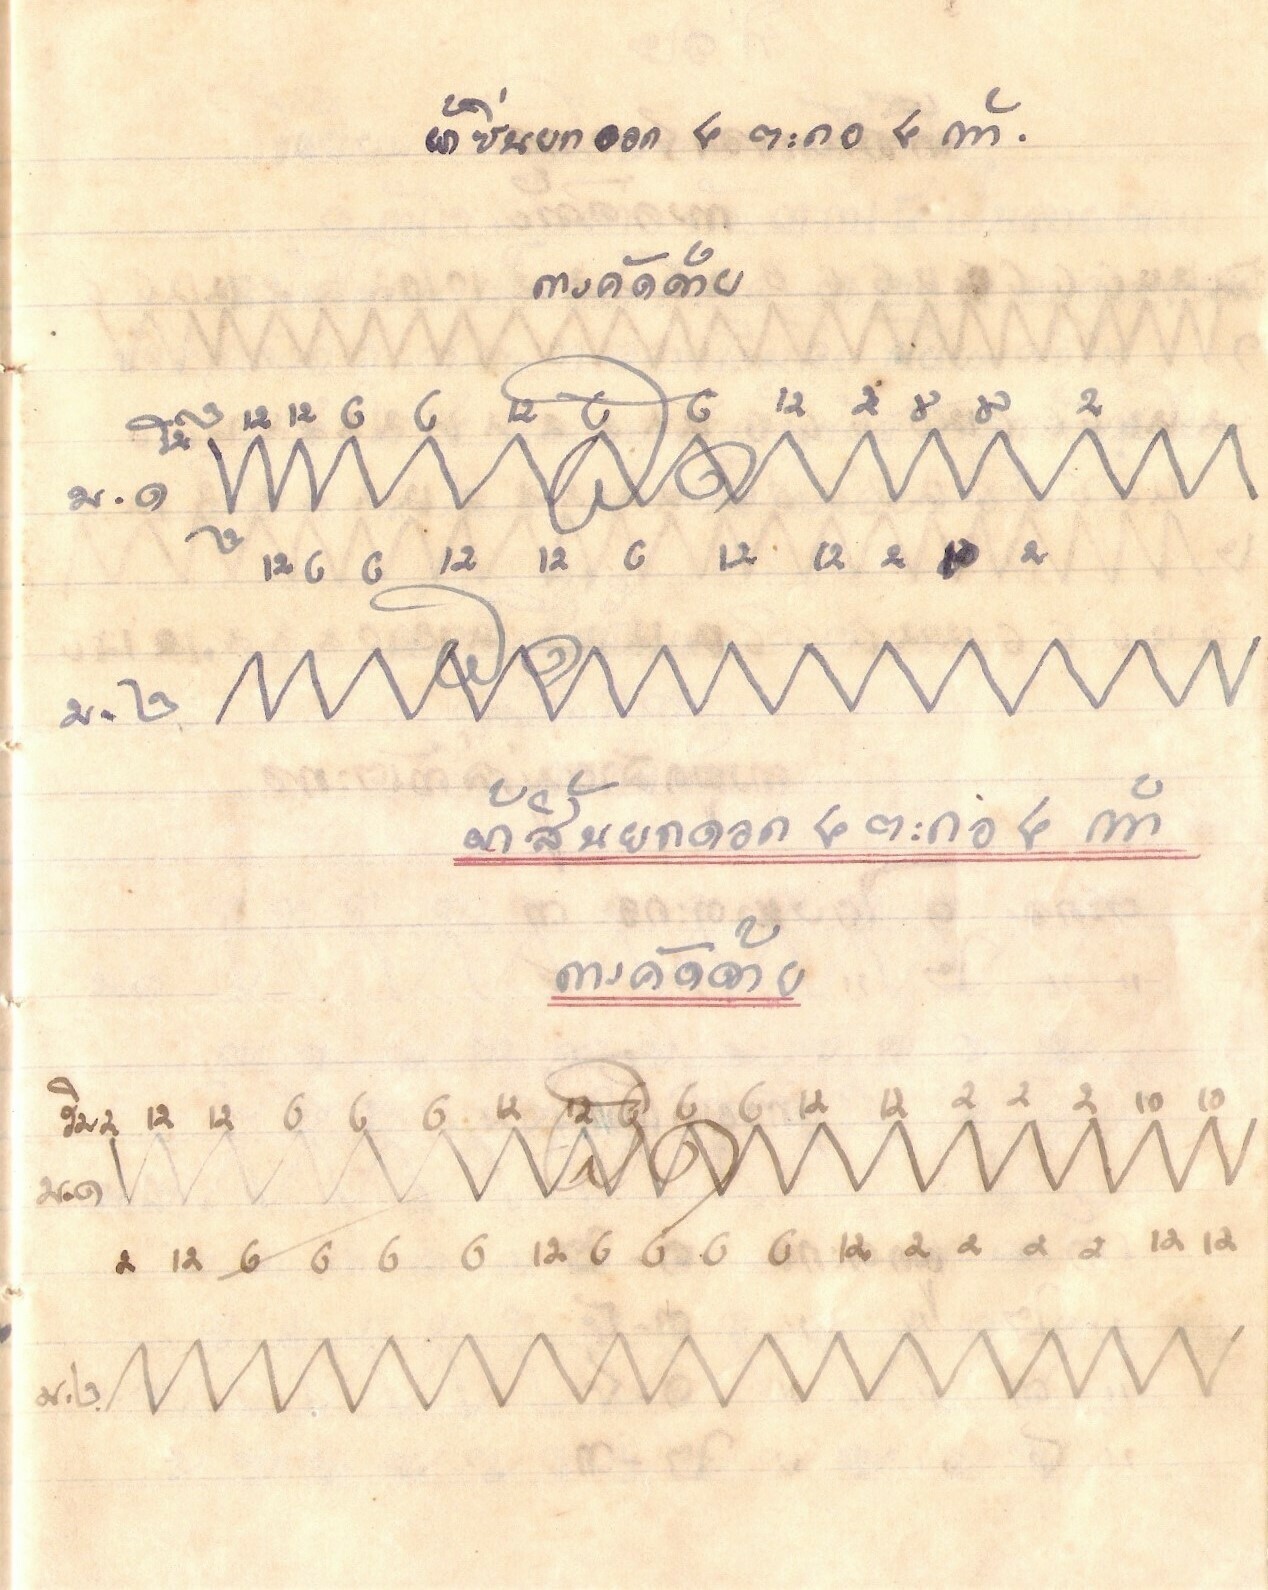 ผ้าซิ่นยกดอก ๔ ตะกอ ๔ ทำ้.
การคัดด้าย
12 12 6 6 12 6 6 12 2 ๘ ๘ 2
ม.๑
12 6 6 12 12 6 12 12 2 2
ม.๒
ผ้าสิ้นยกดอก ๔ ตะก่อ ๔ ทำ้
การคัดด้าย
ริม2 12 12 6 6 6 12 12 6 6 6 12 12 2 2 2 10 10
ม.๑
2 12 6 6 6 6 12 6 6 6 6 12 2 2 2 2 12 12
ม.๒.